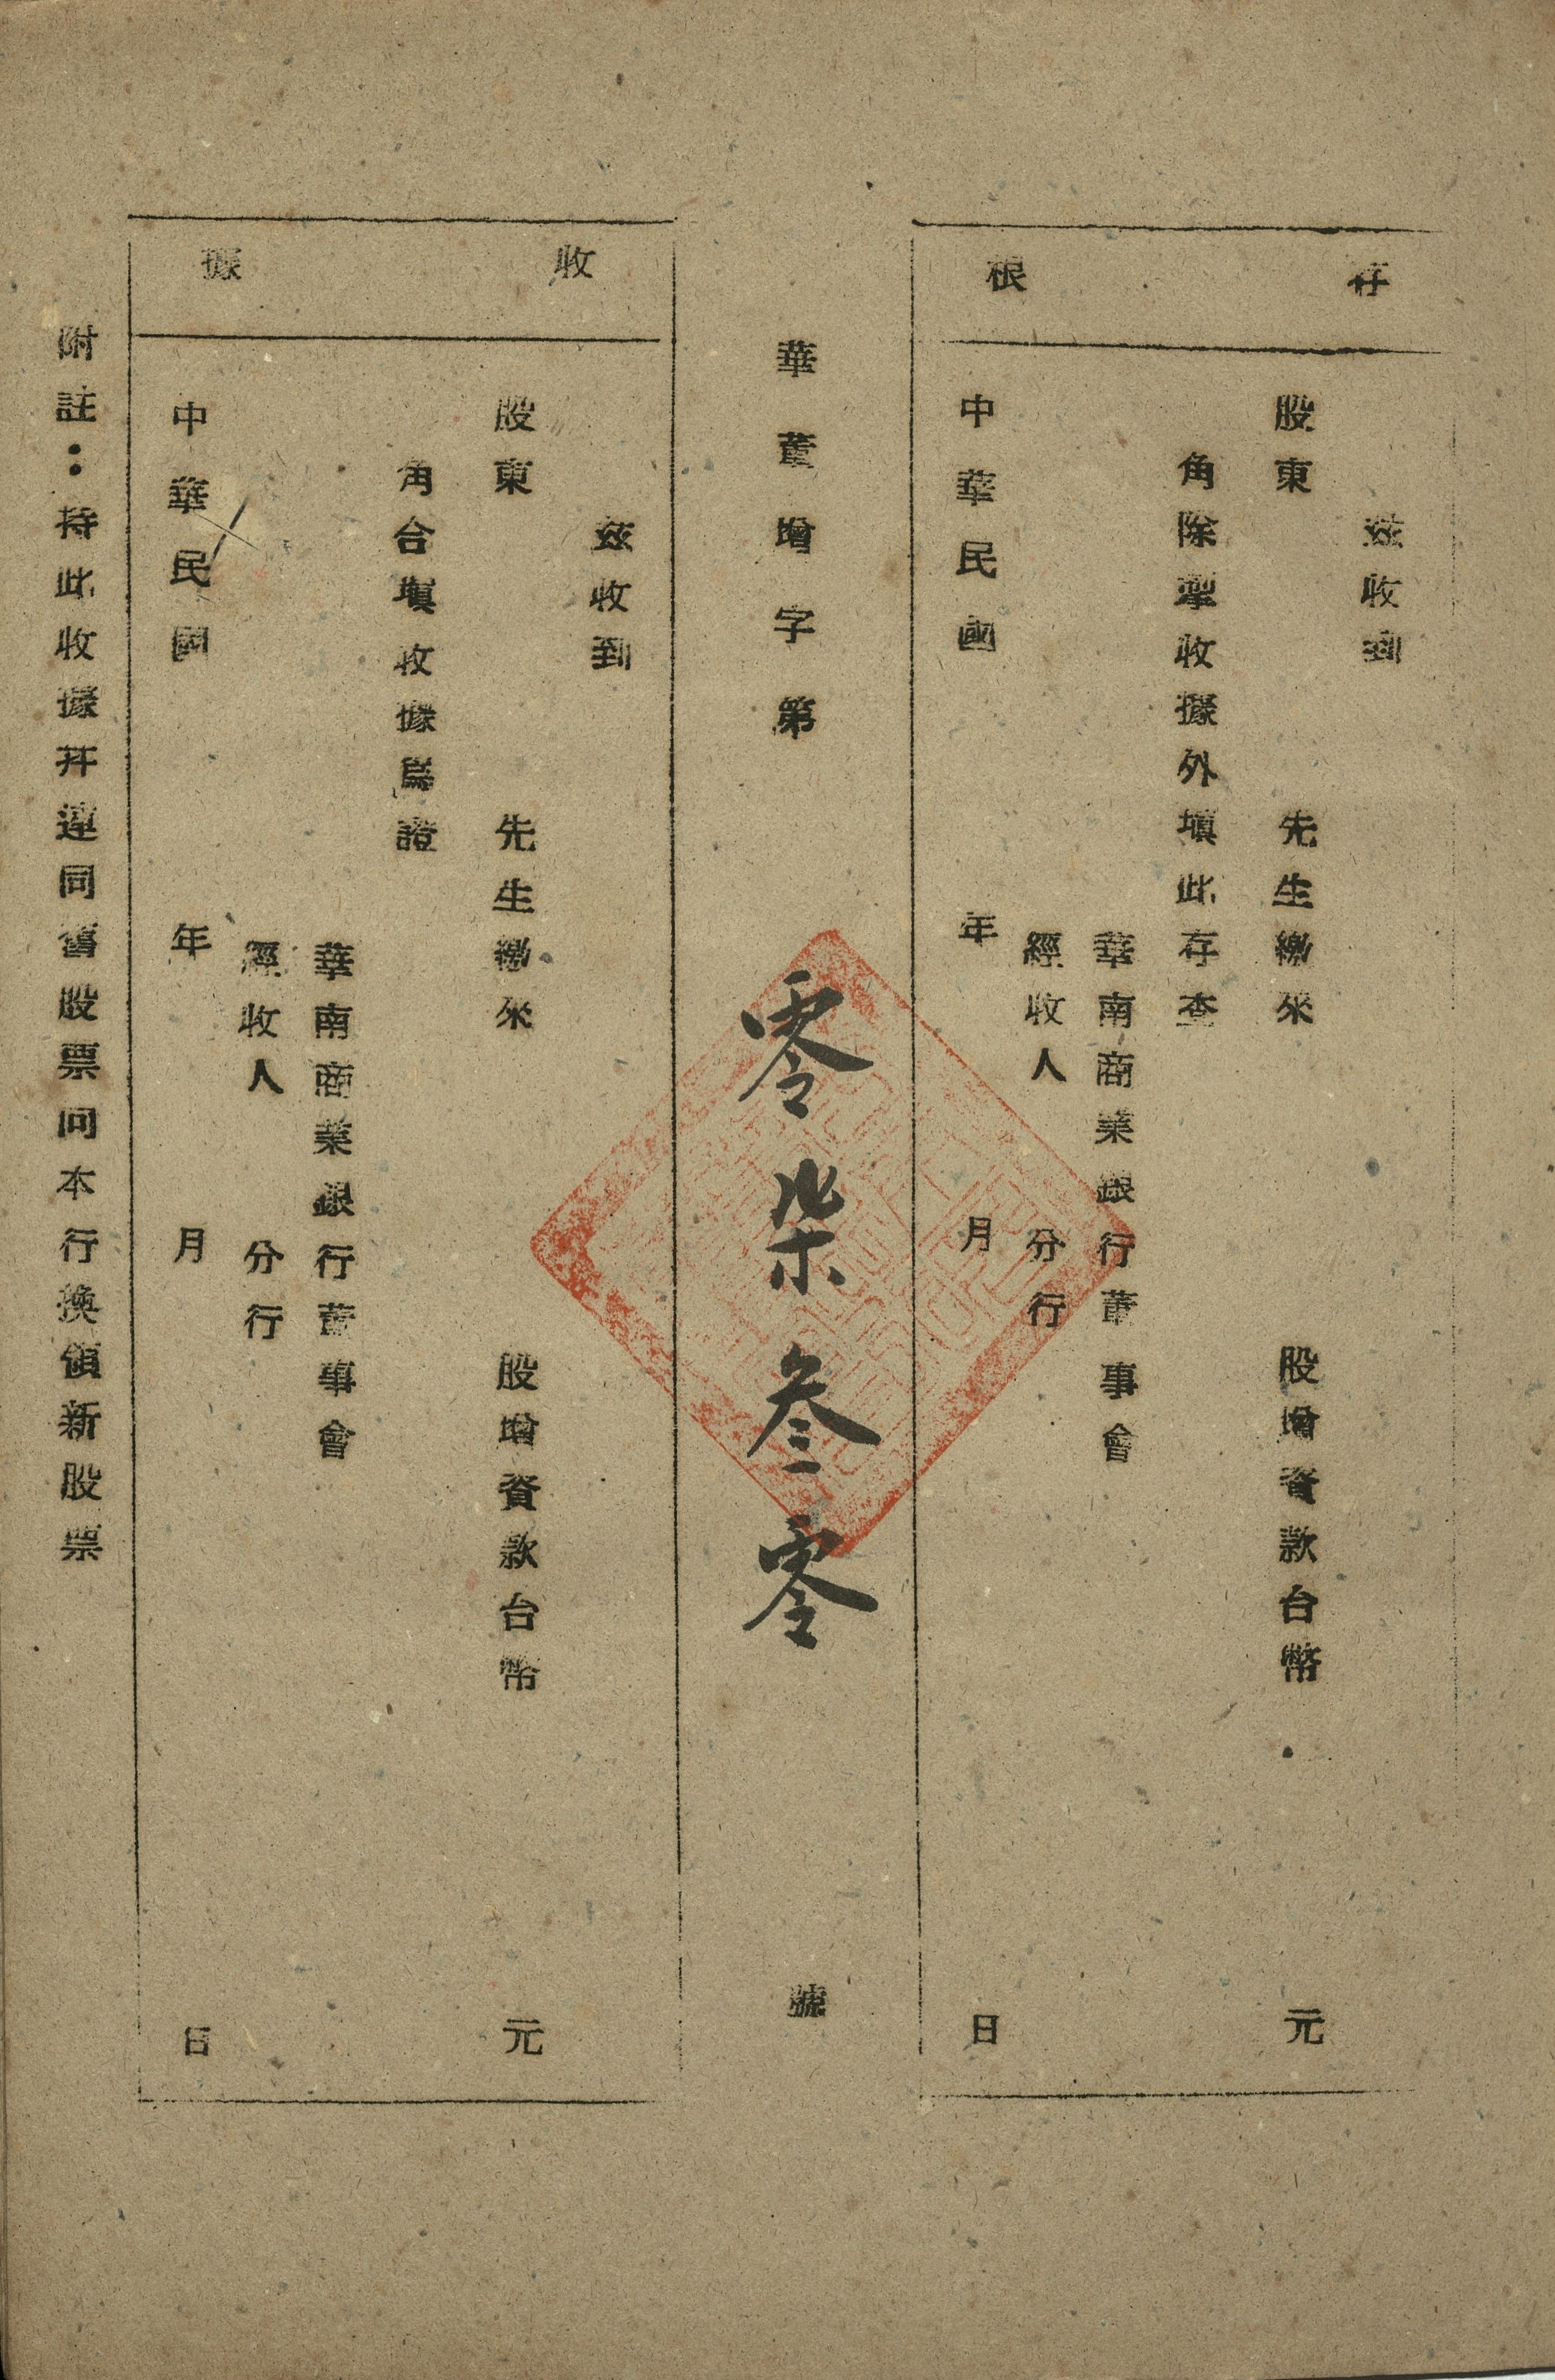 存根
茲收到
股東　先生繳來　股增資款台幣　元
角除掣收據外填此存查
華南商業銀行董事會
經收人　分行
中華民國　年　月　日
華董增字第　零柒叁零　號
收據
茲收到
股東　先生繳來　股增資款台幣　元
角合填收據爲證
華南商業銀行董事會
經收人　分行
中華民國　年　月　日
附註：持此收據幷連同舊股票向本行換領新股票